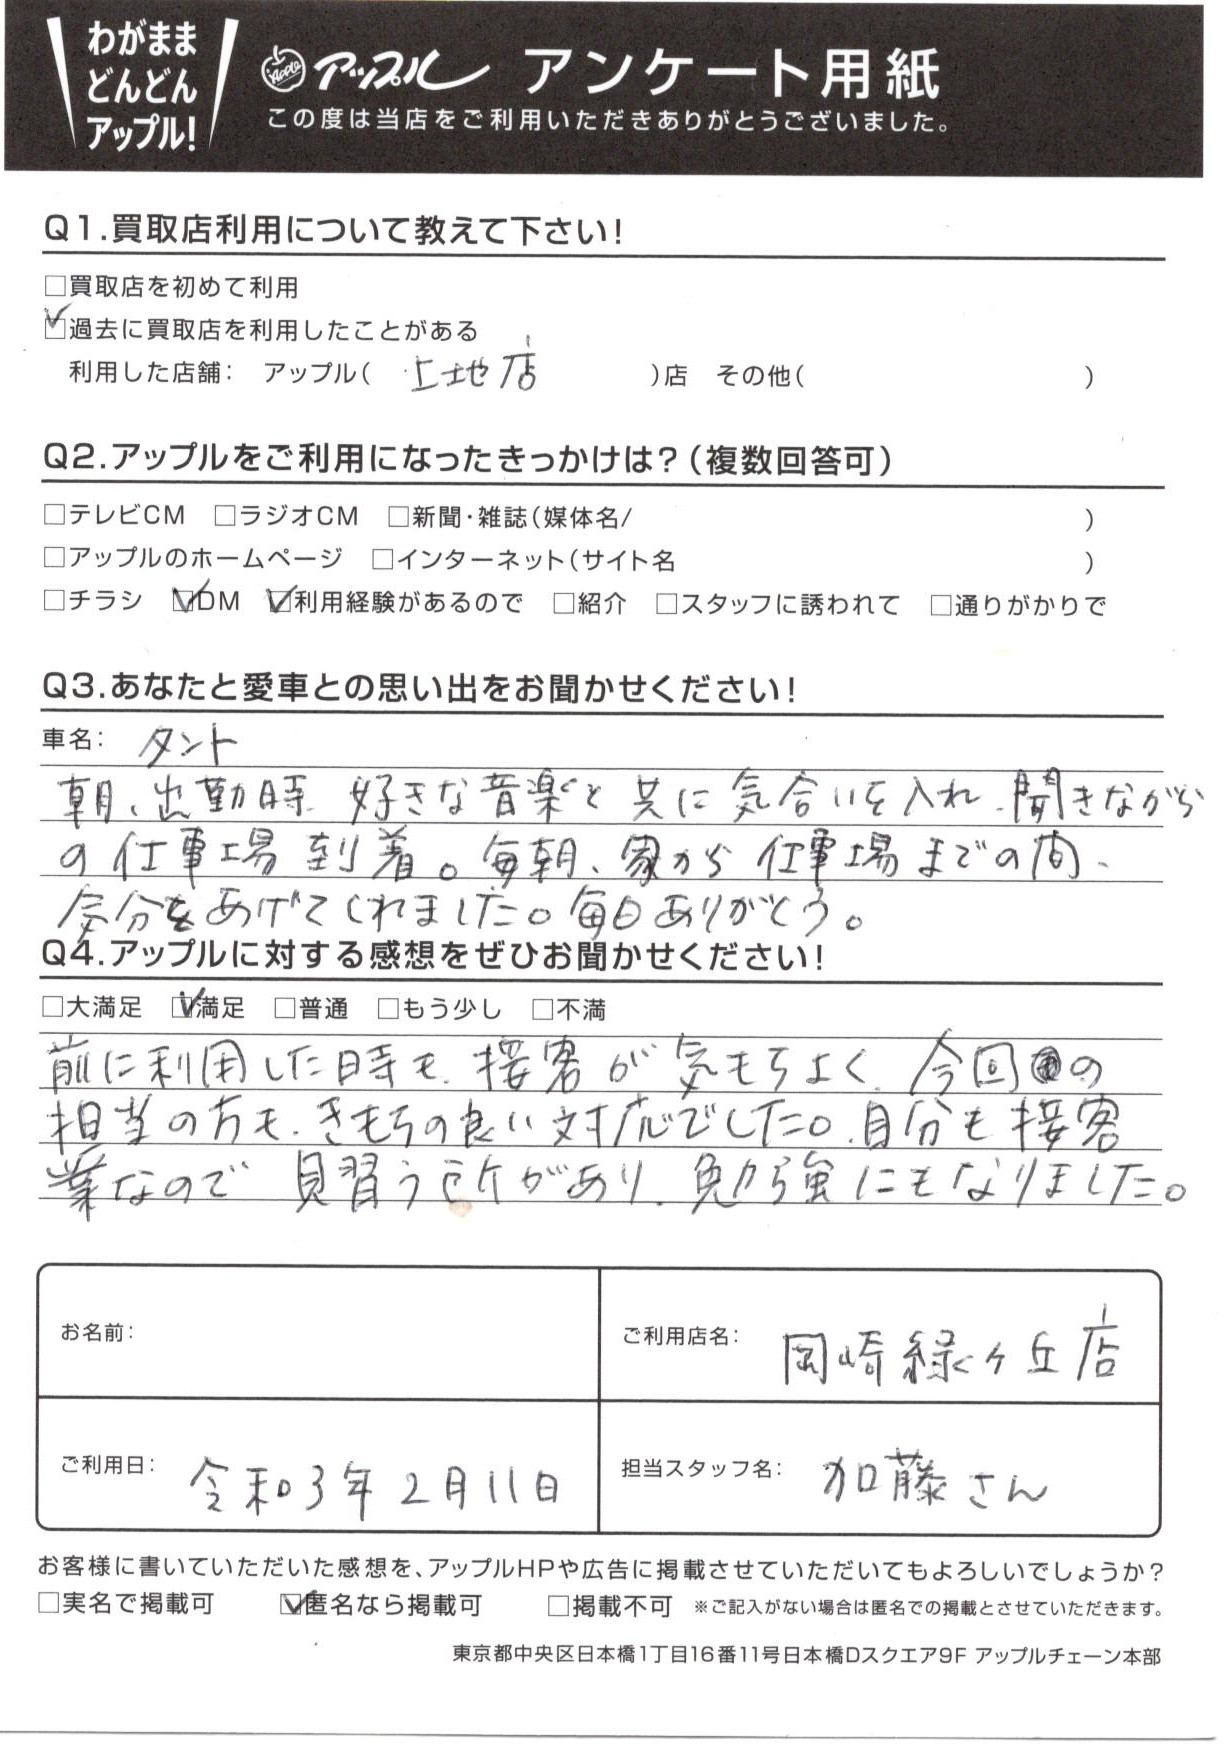 わがまま
どんどん
アップル!
Apple アップル アンケート用紙
この度は当店をご利用いただきありがとうございました。
Q1.買取店利用について教えて下さい!
□買取店を初めて利用
☑過去に買取店を利用したことがある
利用した店舗: アップル( 上地店 )店 その他( )
Q2.アップルをご利用になったきっかけは?(複数回答可)
□テレビCM □ラジオCM □新聞・雑誌(媒体名/ )
□アップルのホームページ □インターネット(サイト名 )
□チラシ ☑DM ☑利用経験があるので □紹介 □スタッフに誘われて □通りがかりで
Q3.あなたと愛車との思い出をお聞かせください!
車名: タント
朝、出勤時、好きな音楽と共に気合いを入れ、聞きながら
の仕事場到着。毎朝、家から仕事場までの間、
気分をあげてくれました。毎日ありがとう。
Q4.アップルに対する感想をぜひお聞かせください!
□大満足 ☑満足 □普通 □もう少し □不満
前に利用した時も、接客が気もちよく、今回の
担当の方も、きもちの良い対応でした。自分も接客
業なので見習う所があり、勉強にもなりました。
お名前:
ご利用店名: 岡崎緑ヶ丘店
ご利用日: 令和3年2月11日
担当スタッフ名: 加藤さん
お客様に書いていただいた感想を、アップルHPや広告に掲載させていただいてもよろしいでしょうか?
□実名で掲載可 ☑匿名なら掲載可 □掲載不可 ※ご記入がない場合は匿名での掲載とさせていただきます。
東京都中央区日本橋1丁目16番11号日本橋Dスクエア9F アップルチェーン本部